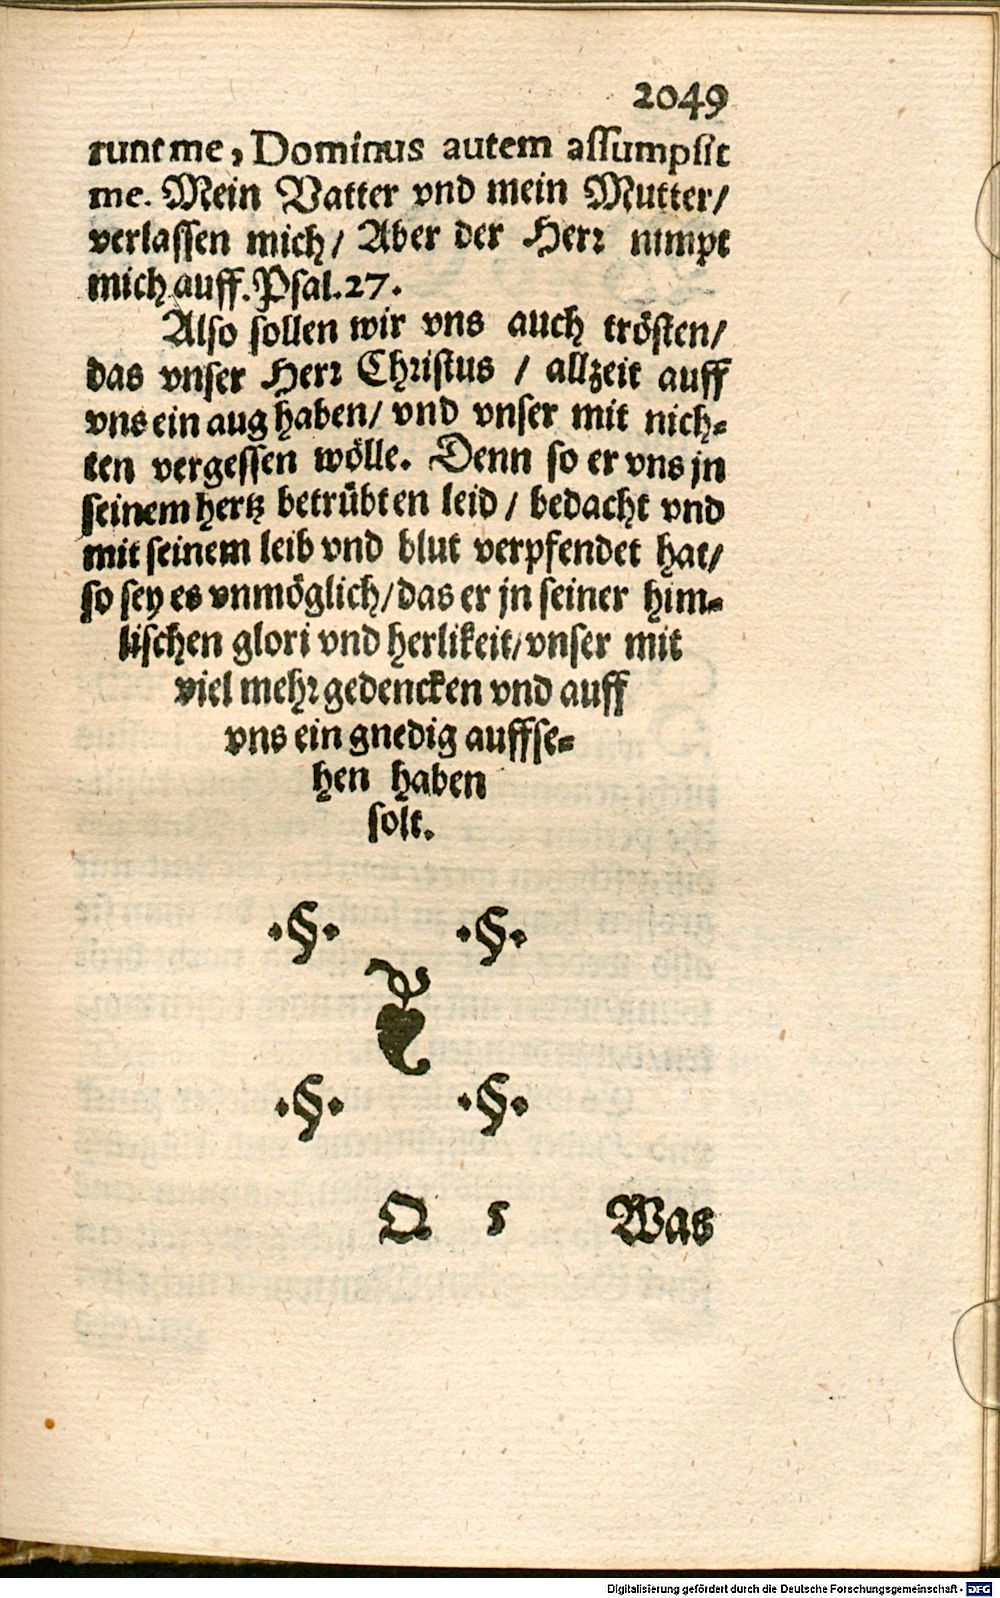 2049
runt me, Dominus autem assumpsit
me. Mein Vatter vnd mein Mutter/
verlassen mich/ Aber der Herr nimpt
mich auff. Psal. 27.
Also sollen wir vns auch trösten/
das vnser Herr Christus / allzeit auff
vns ein aug haben/ vnd vnser mit nich⸗
ten vergessen wölle. Denn so er vns jn
seinem hertz betrübten leid / bedacht vnd
mit seinem leib vnd blut verpfendet hat/
so sey es vnmöglich/ das er jn seiner him⸗
lischen glori vnd herlikeit/ vnser mit
viel mehr gedencken vnd auff
vns ein gnedig auffse⸗
hen haben
solt.
·§· ·§·
·§· ·§·
Q 5 Was
Digitalisierung gefördert durch die Deutsche Forschungsgemeinschaft - DFG